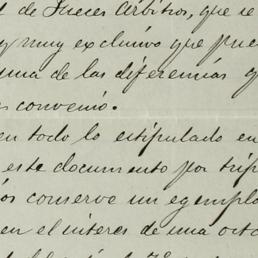 de Jueces Arbitros, que se
y muy exclusivo que pue
una de las diferencias q
convenio.
en todo lo estipulado en
este documento por trip
os conserve un ejempla
en el interes de una octa